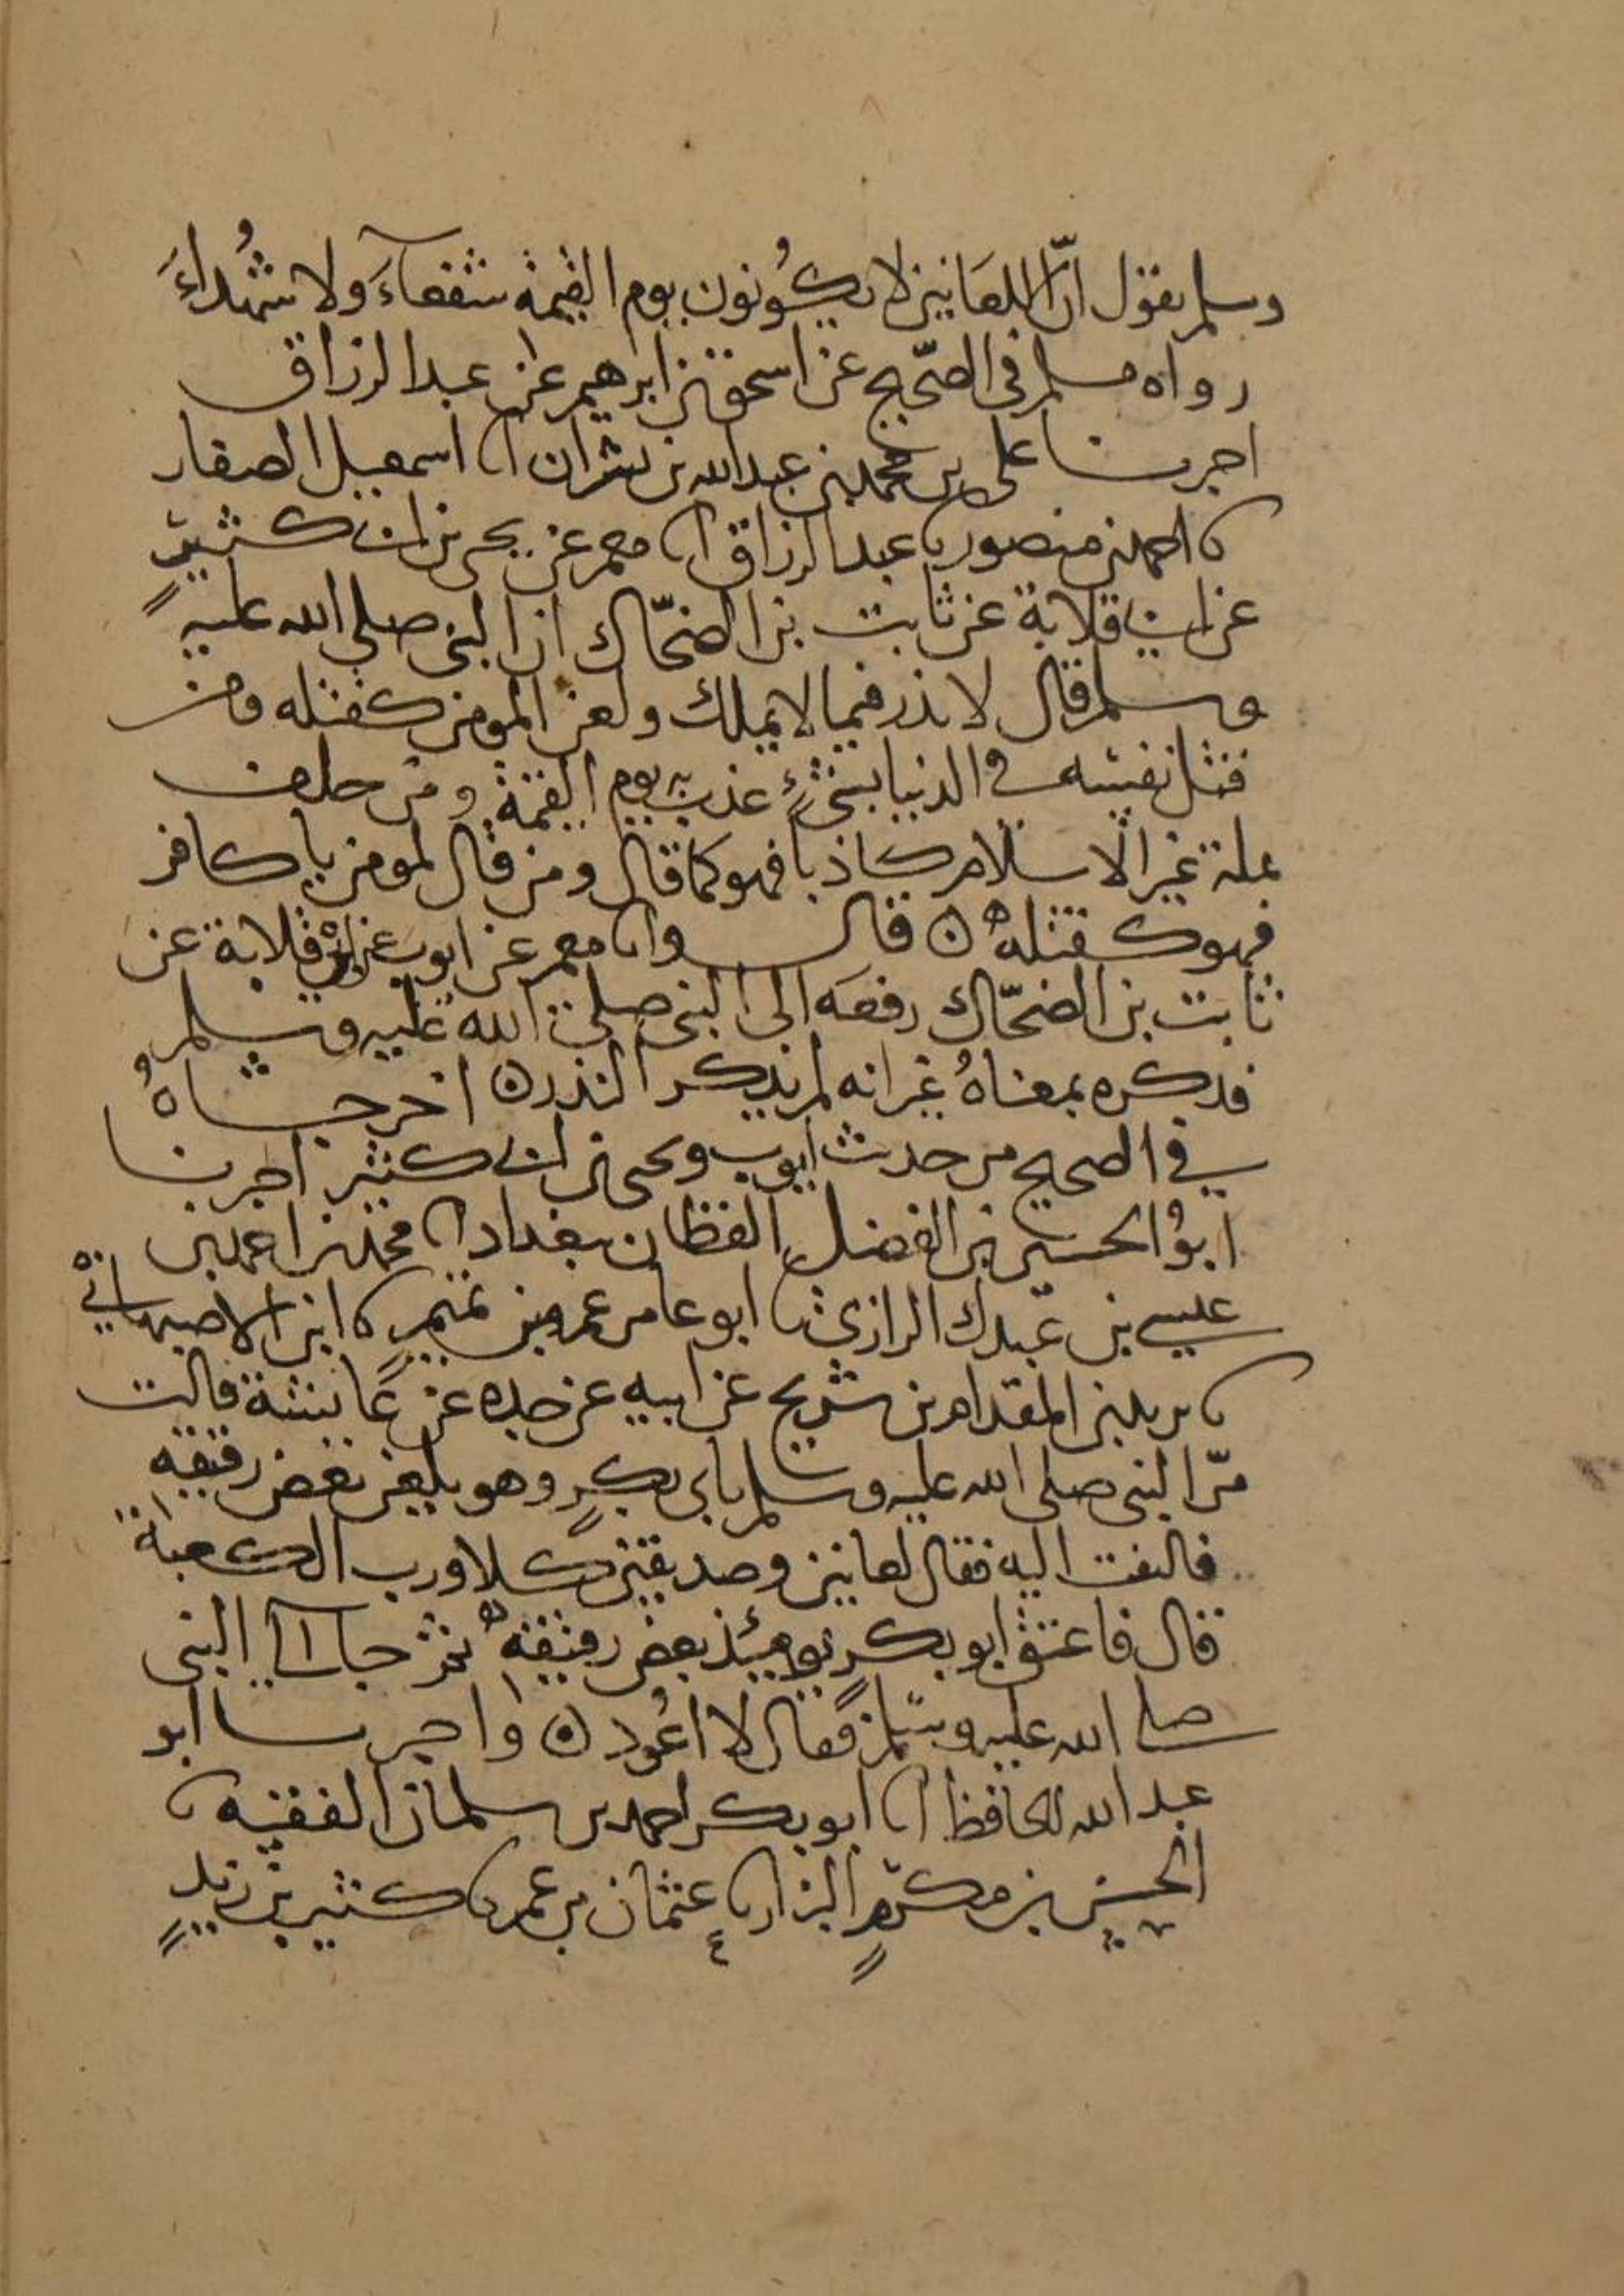 وسلم يقول انّ اللعانين لا يكُونون يوم القيمة شفعآءَ ولا شُهداءَ
رواه مسلم في الصّحيح عن اسحق بن ابرهيم عن عبد الرزاق
اخبرنا على بن محمد بن عبد الله بن بشران انا اسمعيل الصفار
نا احمد بن منصور نا عبد الرزاق انا معمر عن يحيى بن ابي كثيرٍ
عن ابي قلابة عن ثابت بن الضحّاك ان النبى صلى الله عليه
وسلم قال لا نذر فيما لا يملك ولعن المومن كقتله ومن
قتل نفسه في الدنيا بشىءٍ عذب به يوم القيمة ومن حلف
بملة غير الاسلام كاذبا فهو كما قال ومن قال لمومن يا كافر
فهو كقتله ه قال وانا معمر عن ايوب عن ابي قلابة عن
ثابت بن الضحّاك رفعه الى النبى صلى الله عليه وسلم
فذكره بمعناهُ غير انه لم يذكر النذر ه اخرجاهُ
في الصحيح من حديث ايوب ويحيى بن ابي كثير اخبرنا
ابوُ الحسين بن الفضل القطان ببغداد انا محمد بن احمد بن
عيسى بن عبدك الرازى نا ابو عامر عمرو بن تميمٍ نا ابن الاصبهاني
نا يزيد بن المقدام بن شريح عن ابيه عن جده عن عائشة قالت
مرّ النبى صلى الله عليه وسلم بابى بكرٍ وهو يلعن بعض رقيقه
فالتفت اليه فقال لعانين وصديقين كلا ورب الكعبة
قال فاعتق ابو بكرٍ يومئذ بعض رقيقه ثم جا الى النبى
صلى الله عليه وسلم فقال لا اعُود ه واخبرنا ابو
عبد الله الحافظ انا ابو بكر احمد بن سلمان الفقيه نا
الحسن بن مكرمٍ البزار نا عثمان بن عمر نا كثير بن زيدٍ